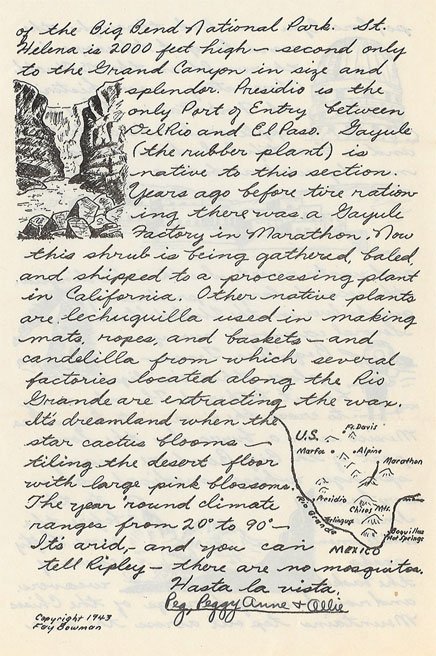 of the Big Bend National Park. St.
Helena is 2000 feet high – second only
to the Grand Canyon in size and
splendor. Presidio is the
only Port of Entry between
Del Rio and El Paso. Gayule
(the rubber plant) is
native to this section.
Years ago before tire ration-
ing there was a Gayule
Factory in Marathon. Now
this shrub is being gathered, baled,
and shipped to a processing plant
in California. Other native plants
are lechuguilla used in making
mats, ropes, and baskets – and
candelilla from which several
factories located along the Rio
Grande are extracting the wax.
It's dreamland when the
star cactus blooms –
tiling the desert floor
with large pink blossoms.
The year 'round climate
ranges from 20° to 90° –
It's arid, – and you can
tell Ripley – there are no mosquitos.
Hasta la vista,
Peg, Peggy Anne & Allie
Copyright 1943
Fay Bowman
U.S.
Ft. Davis
Marfa
Alpine
Marathon
Presidio
Chisos Mts.
Rio Grande
Terlingua
Boquillas
Hot Springs
MEXICO